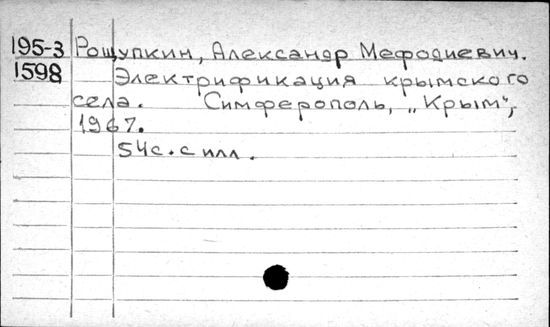 195-3 Рощупкин, Александр Мефодиевич.
1598 Электрификация крымского
села. Симферополь, „Крым",
1967.
54с. с илл.